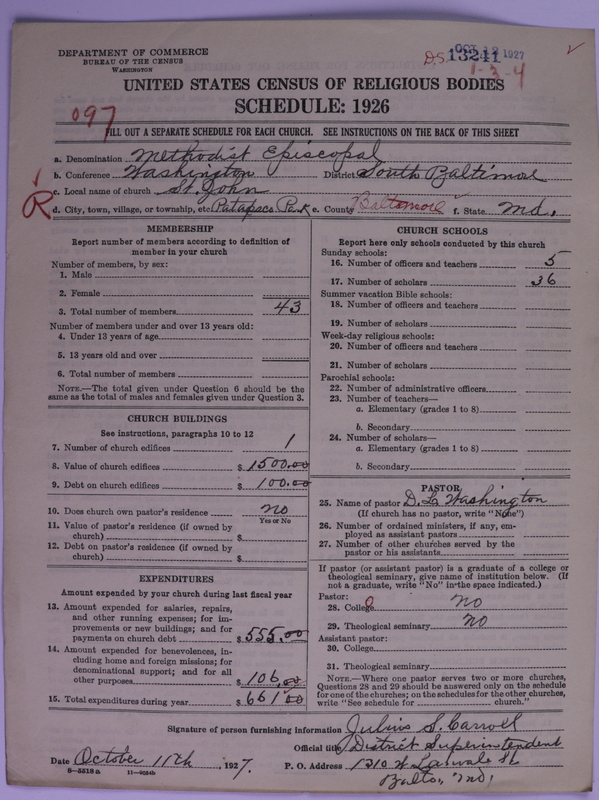 DEPARTMENT OF COMMERCE
BUREAU OF THE CENSUS
WASHINGTON
D.S. 13241
OCT 12 1927
1-3-4
UNITED STATES CENSUS OF RELIGIOUS BODIES
SCHEDULE: 1926
097
FILL OUT A SEPARATE SCHEDULE FOR EACH CHURCH. SEE INSTRUCTIONS ON THE BACK OF THIS SHEET
a. Denomination Methodist Episcopal
b. Conference Washington District South Baltimore
c. Local name of church St. John
R d. City, town, village, or township, etc. Patapsco Park e. County Baltimore f. State Md.
MEMBERSHIP
Report number of members according to definition of
member in your church
Number of members, by sex:
1. Male
2. Female
3. Total number of members 43
Number of members under and over 13 years old:
4. Under 13 years of age
5. 13 years old and over
6. Total number of members
NOTE.—The total given under Question 6 should be the
same as the total of males and females given under Question 3.
CHURCH BUILDINGS
See instructions, paragraphs 10 to 12
7. Number of church edifices 1
8. Value of church edifices $ 1500.00
9. Debt on church edifices $ 100.00
10. Does church own pastor's residence no
Yes or No
11. Value of pastor's residence (if owned by
church) $
12. Debt on pastor's residence (if owned by
church) $
EXPENDITURES
Amount expended by your church during last fiscal year
13. Amount expended for salaries, repairs,
and other running expenses; for im-
provements or new buildings; and for
payments on church debt $ 555.00
14. Amount expended for benevolences, in-
cluding home and foreign missions; for
denominational support; and for all
other purposes $ 106.00
15. Total expenditures during year $ 661.00
CHURCH SCHOOLS
Report here only schools conducted by this church
Sunday schools:
16. Number of officers and teachers 5
17. Number of scholars 36
Summer vacation Bible schools:
18. Number of officers and teachers
19. Number of scholars
Week-day religious schools:
20. Number of officers and teachers
21. Number of scholars
Parochial schools:
22. Number of administrative officers
23. Number of teachers—
a. Elementary (grades 1 to 8)
b. Secondary
24. Number of scholars—
a. Elementary (grades 1 to 8)
b. Secondary
PASTOR
25. Name of pastor D. L. Washington
(If church has no pastor, write "None")
26. Number of ordained ministers, if any, em-
ployed as assistant pastors
27. Number of other churches served by the
pastor or his assistants
If pastor (or assistant pastor) is a graduate of a college or
theological seminary, give name of institution below. (If
not a graduate, write "No" in the space indicated.)
Pastor:
28. College no
29. Theological seminary no
Assistant pastor:
30. College
31. Theological seminary
NOTE.—Where one pastor serves two or more churches,
Questions 28 and 29 should be answered only on the schedule
for one of the churches; on the schedules for the other churches,
write "See schedule for church."
Signature of person furnishing information Julius S. Carroll
Official title District Superintendent
Date October 11th, 1927. P. O. Address 1210 W. Lanvale St
8-5518a
Balto, Md,